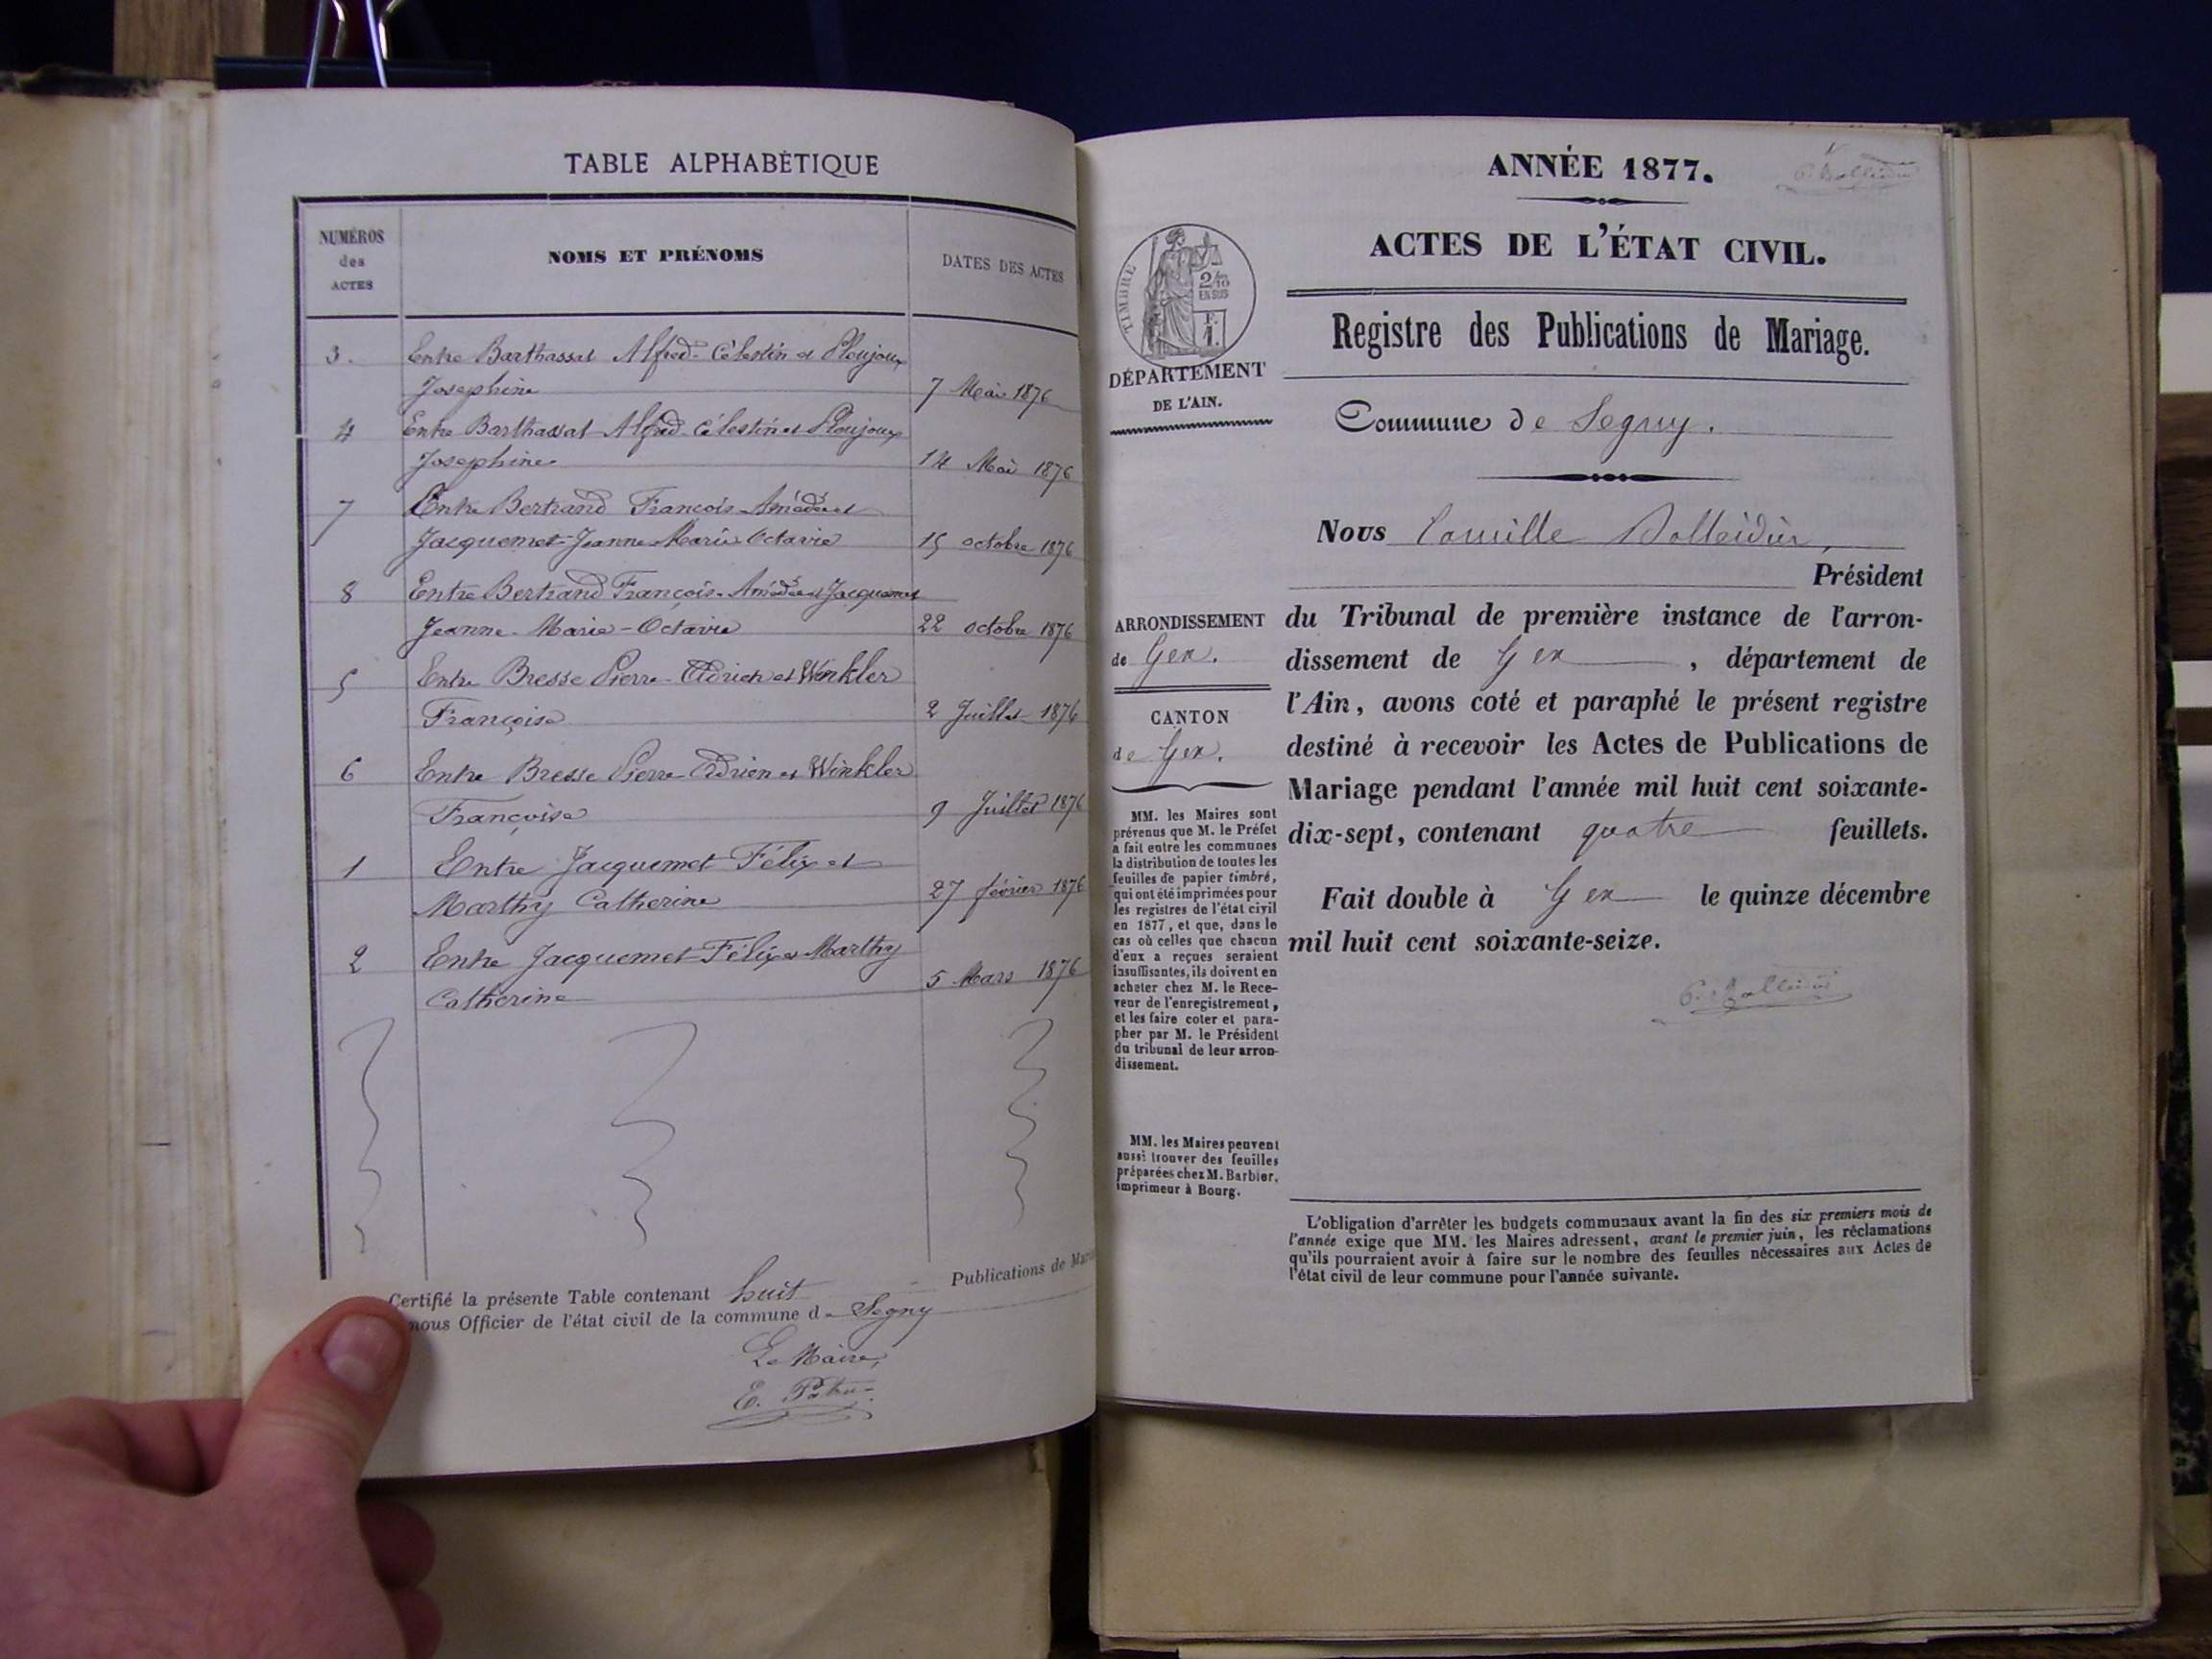 TABLE ALPHABÉTIQUE
NUMÉROS
des
ACTES
NOMS ET PRÉNOMS
DATES DES ACTES
3. Entre Barthassat Alfred-Célestin et Ploujoux
Josephine 7 Mai 1876
4 Entre Barthassat Alfred-Célestin et Ploujoux
Josephine 14 Mai 1876
7 Entre Bertrand François-Amédée et
Jacquemet-Jeanne-Marie Octavie 15 octobre 1876
8 Entre Bertrand François-Amédée et Jacquemet
Jeanne-Marie-Octavie 22 octobre 1876
5 Entre Bresse Pierre-Adrien et Winkler
Françoise 2 Juillet 1876
6 Entre Bresse Pierre-Adrien et Winkler
Françoise 9 Juillet 1876
1 Entre Jacquemet Félix et
Marthy Catherine 27 février 1876
2 Entre Jacquemet Félix et Marthy
Catherine 5 Mars 1876
Certifié la présente Table contenant huit Publications de
nous Officier de l'état civil de la commune de Segny
Le Maire,
E.
ANNÉE 1877.
ACTES DE L'ÉTAT CIVIL.
TIMBRE
2/10
EN SUS
F.
1.
DÉPARTEMENT
DE L'AIN.
Registre des Publications de Mariage.
Commune de Segny.
Nous Camille
Président
du Tribunal de première instance de l'arron-
dissement de Gex, département de
l'Ain, avons coté et paraphé le présent registre
destiné à recevoir les Actes de Publications de
Mariage pendant l'année mil huit cent soixante-
dix-sept, contenant quatre feuillets.
Fait double à Gex le quinze décembre
mil huit cent soixante-seize.
ARRONDISSEMENT
de Gex.
CANTON
de Gex.
MM. les Maires sont
prévenus que M. le Préfet
a fait entre les communes
la distribution de toutes les
feuilles de papier timbré,
qui ont été imprimées pour
les registres de l'état civil
en 1877, et que, dans le
cas où celles que chacun
d'eux a reçues seraient
insuffisantes, ils doivent en
acheter chez M. le Rece-
veur de l'enregistrement,
et les faire coter et para-
pher par M. le Président
du tribunal de leur arron-
dissement.
MM. les Maires peuvent
aussi trouver des feuilles
préparées chez M. Barbier,
imprimeur à Bourg.
L'obligation d'arrêter les budgets communaux avant la fin des six premiers mois de
l'année exige que MM. les Maires adressent, avant le premier juin, les réclamations
qu'ils pourraient avoir à faire sur le nombre des feuilles nécessaires aux Actes de
l'état civil de leur commune pour l'année suivante.